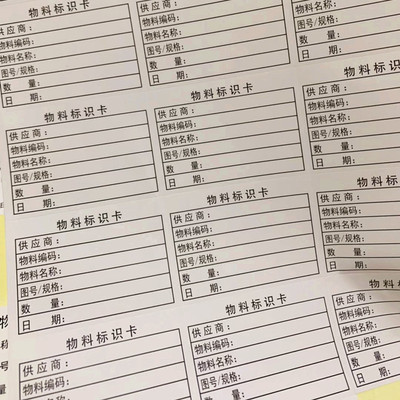 物料标识卡
供应商:
物料编码:
物料名称:
图号/规格:
数 量:
日 期:
供应商:
物料编码:
物料名称:
图号/规格:
数 量:
日 期:
图号/规格:
数 量:
日 期:
物料标识卡
供应商:
物料编码:
物料名称:
图号/规格:
数 量:
日 期:
物料标识卡
供应商:
物料编码:
物料名称:
图号/规格:
数 量:
日 期:
物料标识
供应商:
物料编码:
物料名称:
图号/规格:
数 量:
日 期:
物料标识卡
供应商:
物料编码:
物料名称:
图号/规格:
数 量:
日 期:
物料标识卡
供应商:
物料编码:
物料名称:
图号/规格:
数 量:
日 期:
物料标识
供应商:
物料编码:
物料名称:
图号/规格:
数 量:
日 期:
物料标识卡
供应商:
物料编码:
物料标识卡
供应商:
物料编码:
物料名称:
图号/规格:
数 量:
物料
供应商:
物料编码:
物料名称:
图号/规格:
数 量: